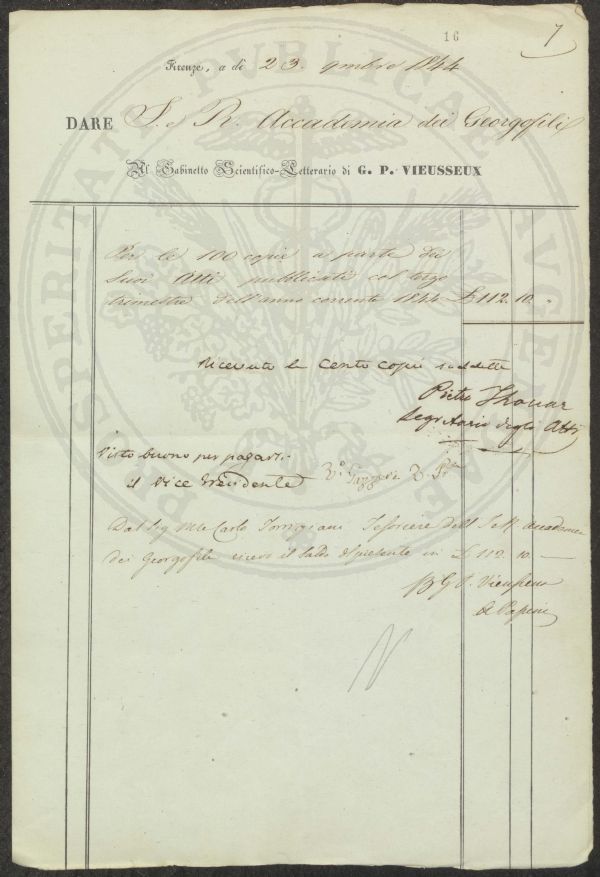 16
7
Firenze, a dì 23. 9mbre 1844
DARE I. e R. Accademia dei Georgofili
Al Gabinetto Scientifico-Letterario di G. P. VIEUSSEUX
Per le 100 copie a parte dei
Suoi Atti pubblicati col terzo
trimestre dell'anno corrente 1844 £ 112. 10. "
Ricevuto le Cento Copie suddette
Pietro Thouar
Segretario degli Atti
Visto buono per pagarsi
il Vice Presidente
Dal Sig. Mse Carlo Torrigiani Tesoriere dell' I. e R. Accademia
dei Georgofili ricevo il saldo del presente in £ 112. 10. —
G. P. Vieusseux
PROSPERITATI PUBLICAE AUGENDAE